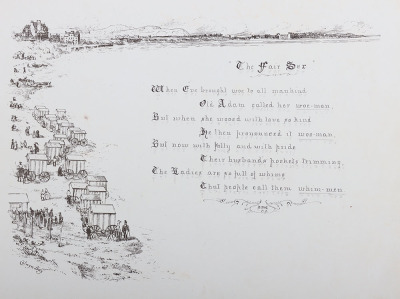 The Fair Sex
When Eve brought woe to all mankind
Old Adam called her woe-man,
But when she wooed with love so kind
He then pronounced it woo-man.
But now with folly and with pride
Their husbands pockets trimming,
The Ladies are so full of whims
That people call them whim-men.